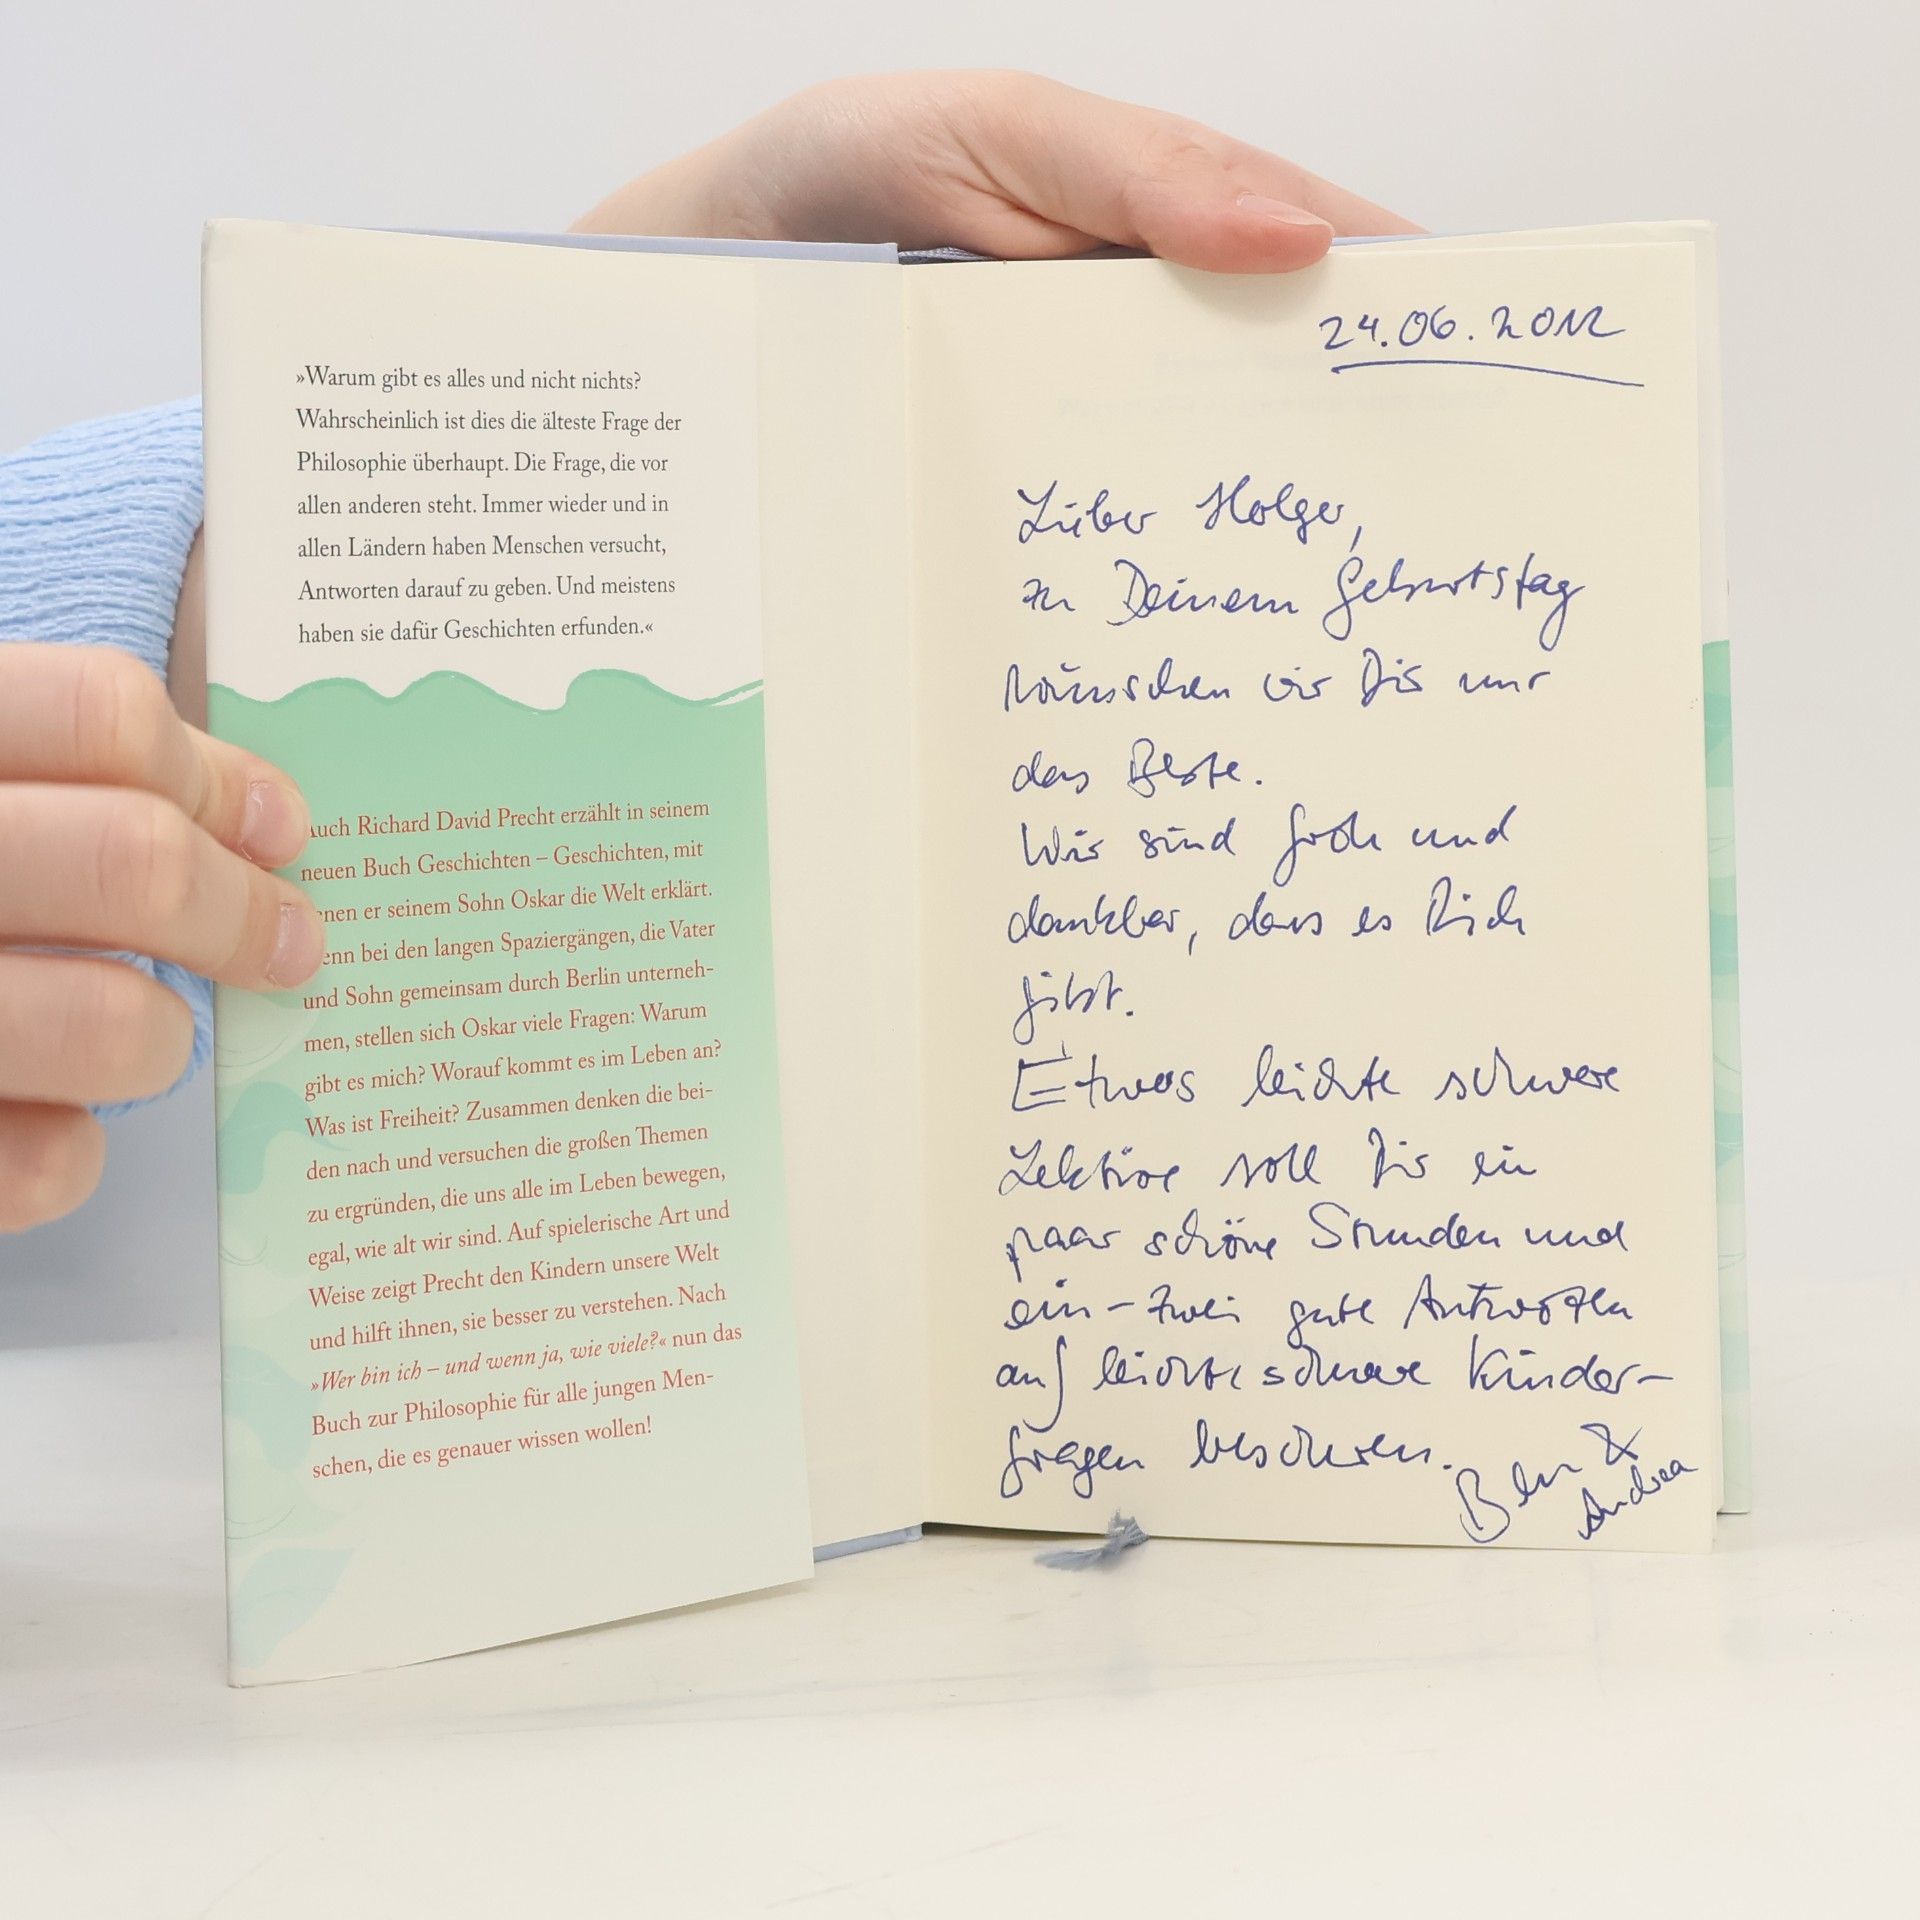 »Warum gibt es alles und nicht nichts?
Wahrscheinlich ist dies die älteste Frage der
Philosophie überhaupt. Die Frage, die vor
allen anderen steht. Immer wieder und in
allen Ländern haben Menschen versucht,
Antworten darauf zu geben. Und meistens
haben sie dafür Geschichten erfunden.«
Auch Richard David Precht erzählt in seinem
neuen Buch Geschichten – Geschichten, mit
denen er seinem Sohn Oskar die Welt erklärt.
Denn bei den langen Spaziergängen, die Vater
und Sohn gemeinsam durch Berlin unterneh-
men, stellen sich Oskar viele Fragen: Warum
gibt es mich? Worauf kommt es im Leben an?
Was ist Freiheit? Zusammen denken die bei-
den nach und versuchen die großen Themen
zu ergründen, die uns alle im Leben bewegen,
egal, wie alt wir sind. Auf spielerische Art und
Weise zeigt Precht den Kindern unsere Welt
und hilft ihnen, sie besser zu verstehen. Nach
»Wer bin ich – und wenn ja, wie viele?« nun das
Buch zur Philosophie für alle jungen Men-
schen, die es genauer wissen wollen!
24.06.2012
Lieber Holger,
zu Deinem Geburtstag
wünschen wir Dir nur
das Beste.
Wir sind froh und
dankbar, dass es Dich
gibt.
Etwas leichte schwere
Lektüre soll Dir ein
paar schöne Stunden und
ein-zwei gute Antworten
auf leichte schwere Kinder-
fragen bescheren.
&
Andrea